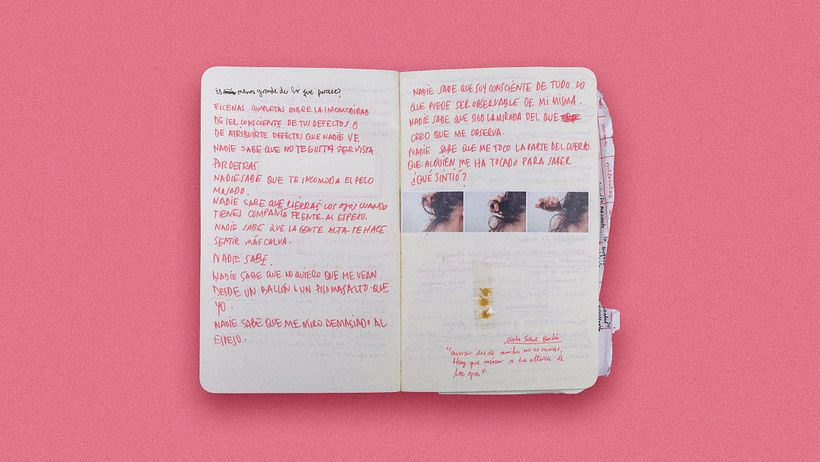 es menos grande de lo que parece?
ESCENAS COMPLETAS SOBRE LA INCOMODIDAD
DE SER CONSCIENTE DE TUS DEFECTOS O
DE ATRIBUIRTE DEFECTOS QUE NADIE VE.
NADIE SABE QUE NO TE GUSTA SER VISTA
POR DETRAS
NADIE SABE QUE TE INCOMODA EL PELO
MOJADO.
NADIE SABE QUE LIBERAS LOS OJOS CUANDO
TIENES COMPAÑIA FRENTE AL ESPEJO.
NADIE SABE QUE LA GENTE ALTA TE HACE
SENTIR MÁS CALVA.
NADIE SABE
NADIE SABE QUE NO QUIERO QUE ME VEAN
DESDE UN BALCÓN O UN PISO MAS ALTO QUE
YO.
NADIE SABE QUE ME MIRO DEMASIADO AL
ESPEJO.
NADIE SABE QUE SOY CONSCIENTE DE TODO LO
QUE PUEDE SER OBSERVABLE DE MI MISMA.
NADIE SABE QUE SIGO LA MIRADA DEL QUE
CREO QUE ME OBSERVA.
NADIE SABE QUE ME TOCO LA PARTE DEL CUERPO
QUE ALGUIEN ME HA TOCADO PARA SABER
¿QUÉ SINTIÓ?
Cielo Sobre Berlín
"mirar desde arriba no es mirar,
Hay que mirar a la altura de
los ojos"